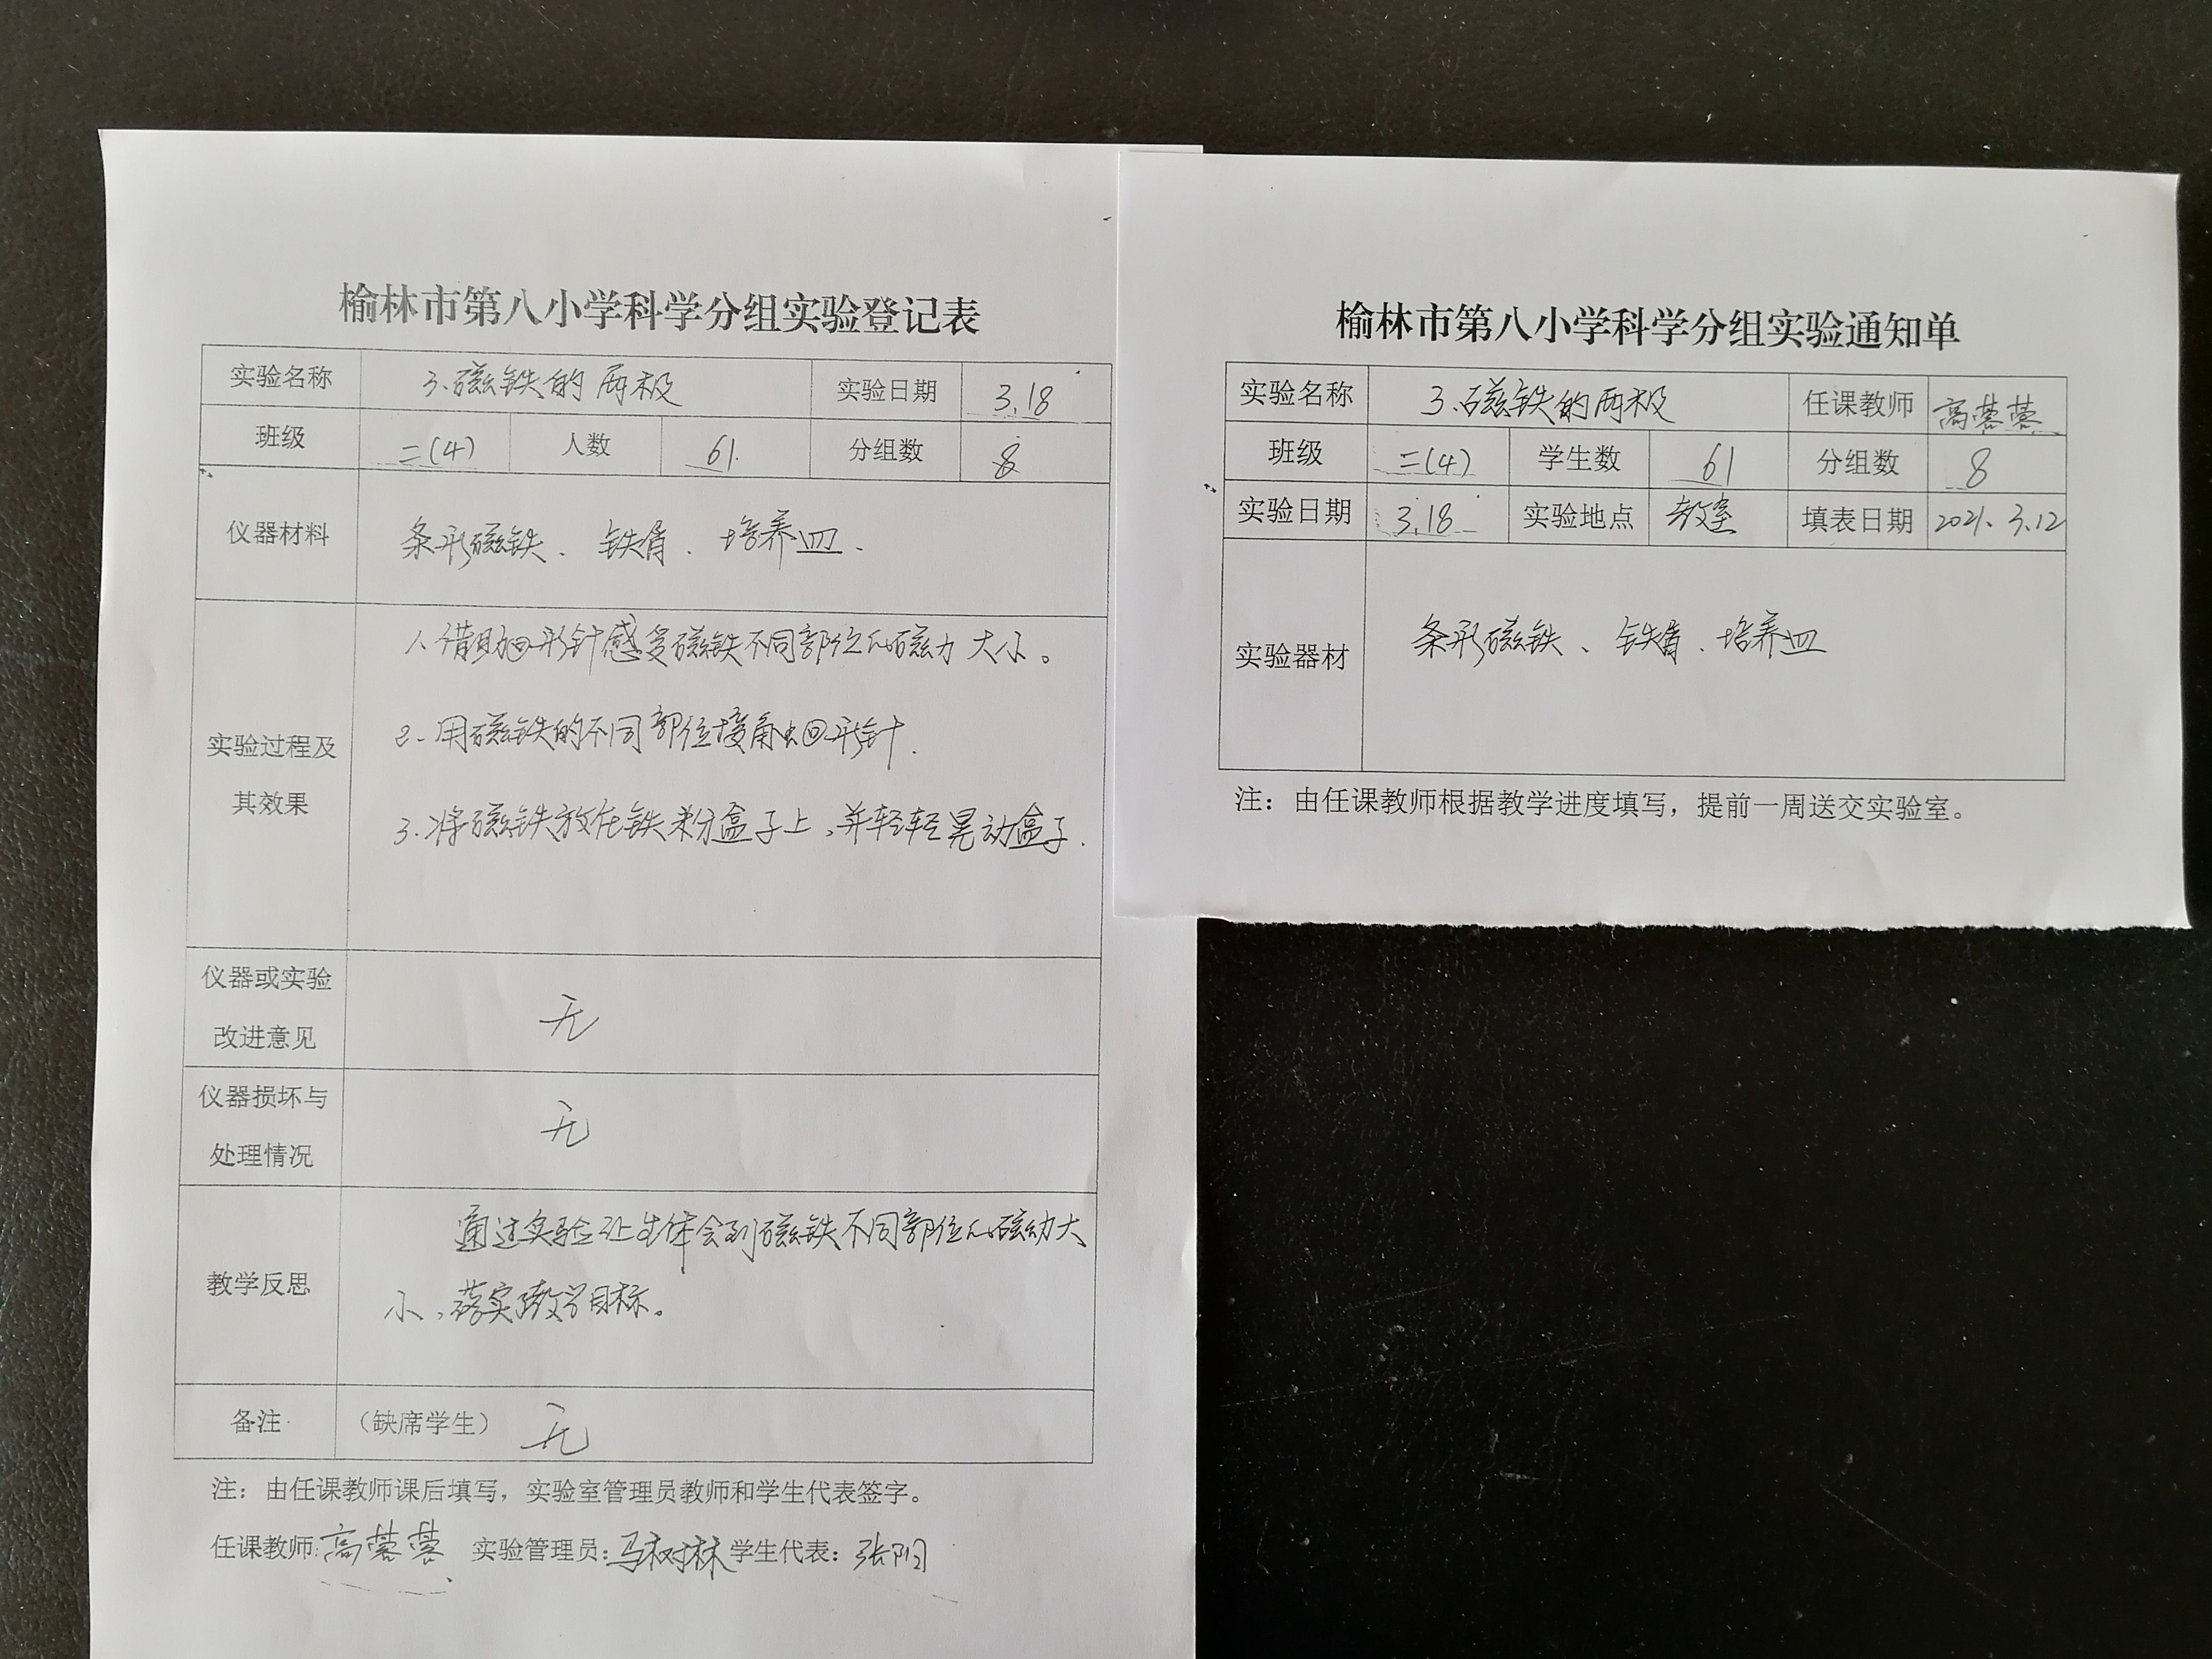 榆林市第八小学科学分组实验登记表
实验名称 3.磁铁的两极 实验日期 3.18
班级 二(4) 人数 61. 分组数 8
仪器材料 条形磁铁、铁屑、培养皿、
实验过程及
其效果
1、借助回形针感受磁铁不同部位的磁力大小。
2、用磁铁的不同部位接触回形针.
3.将磁铁放在铁粉盒子上,并轻轻晃动盒子.
仪器或实验
改进意见
无
仪器损坏与
处理情况
无
教学反思
通过实验让生体会到磁铁不同部位的磁力大
小,落实教学目标。
备注 (缺席学生) 无
注：由任课教师课后填写，实验室管理员教师和学生代表签字。
任课教师:高蓉蓉 实验管理员:马树林 学生代表:张阳
榆林市第八小学科学分组实验通知单
实验名称 3.磁铁的两极 任课教师 高蓉蓉
班级 二(4) 学生数 61 分组数 8
实验日期 3.18 实验地点 教室 填表日期 2021.3.12
实验器材 条形磁铁、铁屑、培养皿
注：由任课教师根据教学进度填写，提前一周送交实验室。